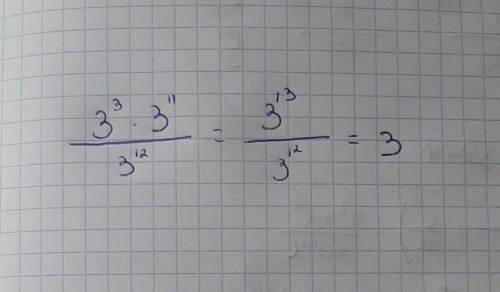 3³ · 3¹¹ / 3¹² = 3¹³ / 3¹² = 3